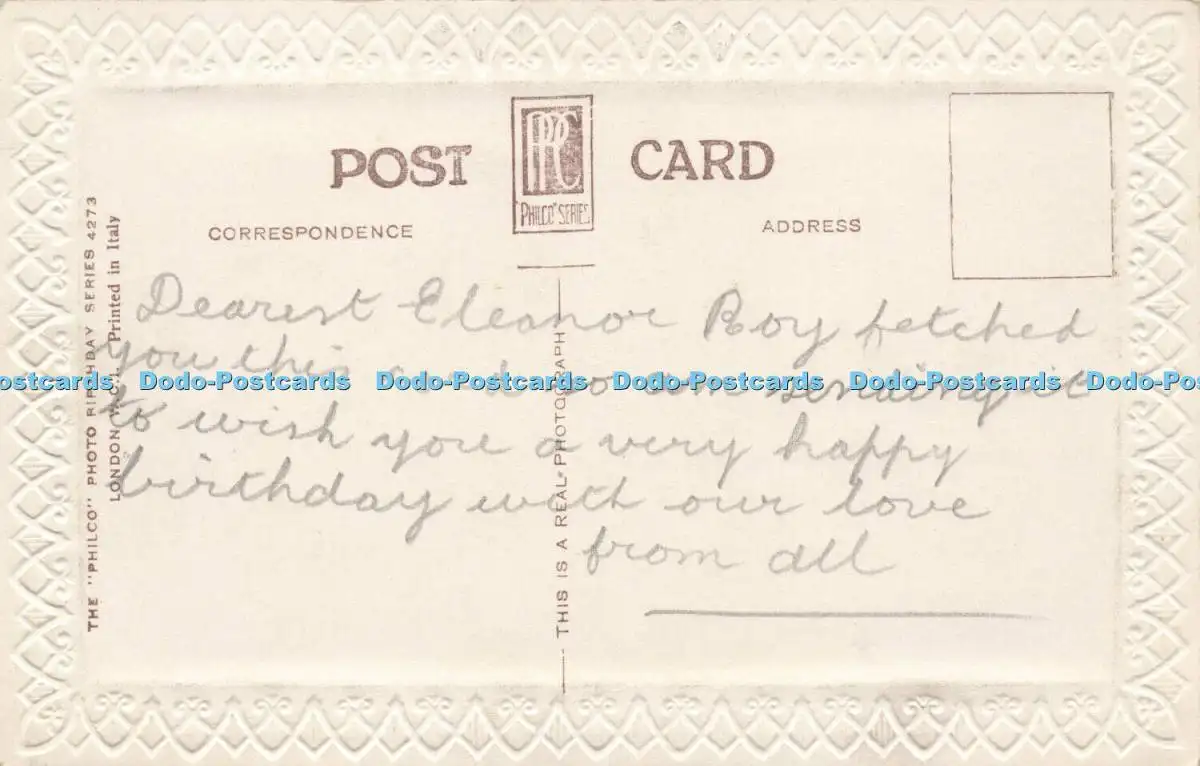 POST CARD
PPC
"PHILCO" SERIES
CORRESPONDENCE
ADDRESS
THE "PHILCO" PHOTO BIRTHDAY SERIES 4273
LONDON W.C.1. Printed in Italy
THIS IS A REAL PHOTOGRAPH
Dearest Eleanor Roy fetched
you this so am sending it
to wish you a very happy
birthday with our love
from all
Dodo-Postcards Dodo-Postcards Dodo-Postcards Dodo-Postcards Dodo-Postcards